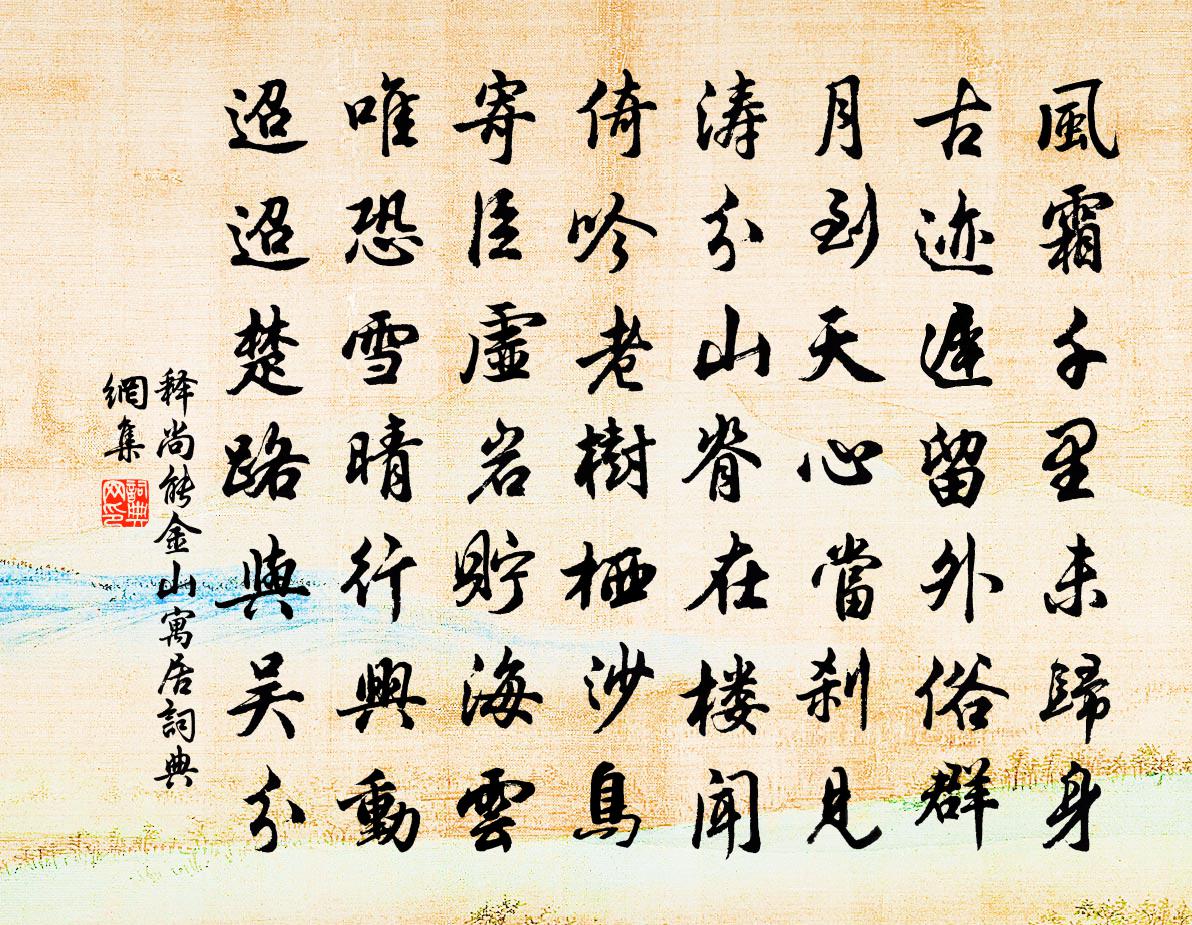 風霜千里未歸身
古迹遲留外俗群
月到天心當刹見
濤分山脊在楼聞
倚吟老樹栖沙鳥
寄臣虛岩貯海雲
唯恐雪晴行興動
迢迢楚路與吴分
释尚能金山寓居詞典
網集
詞典
网印